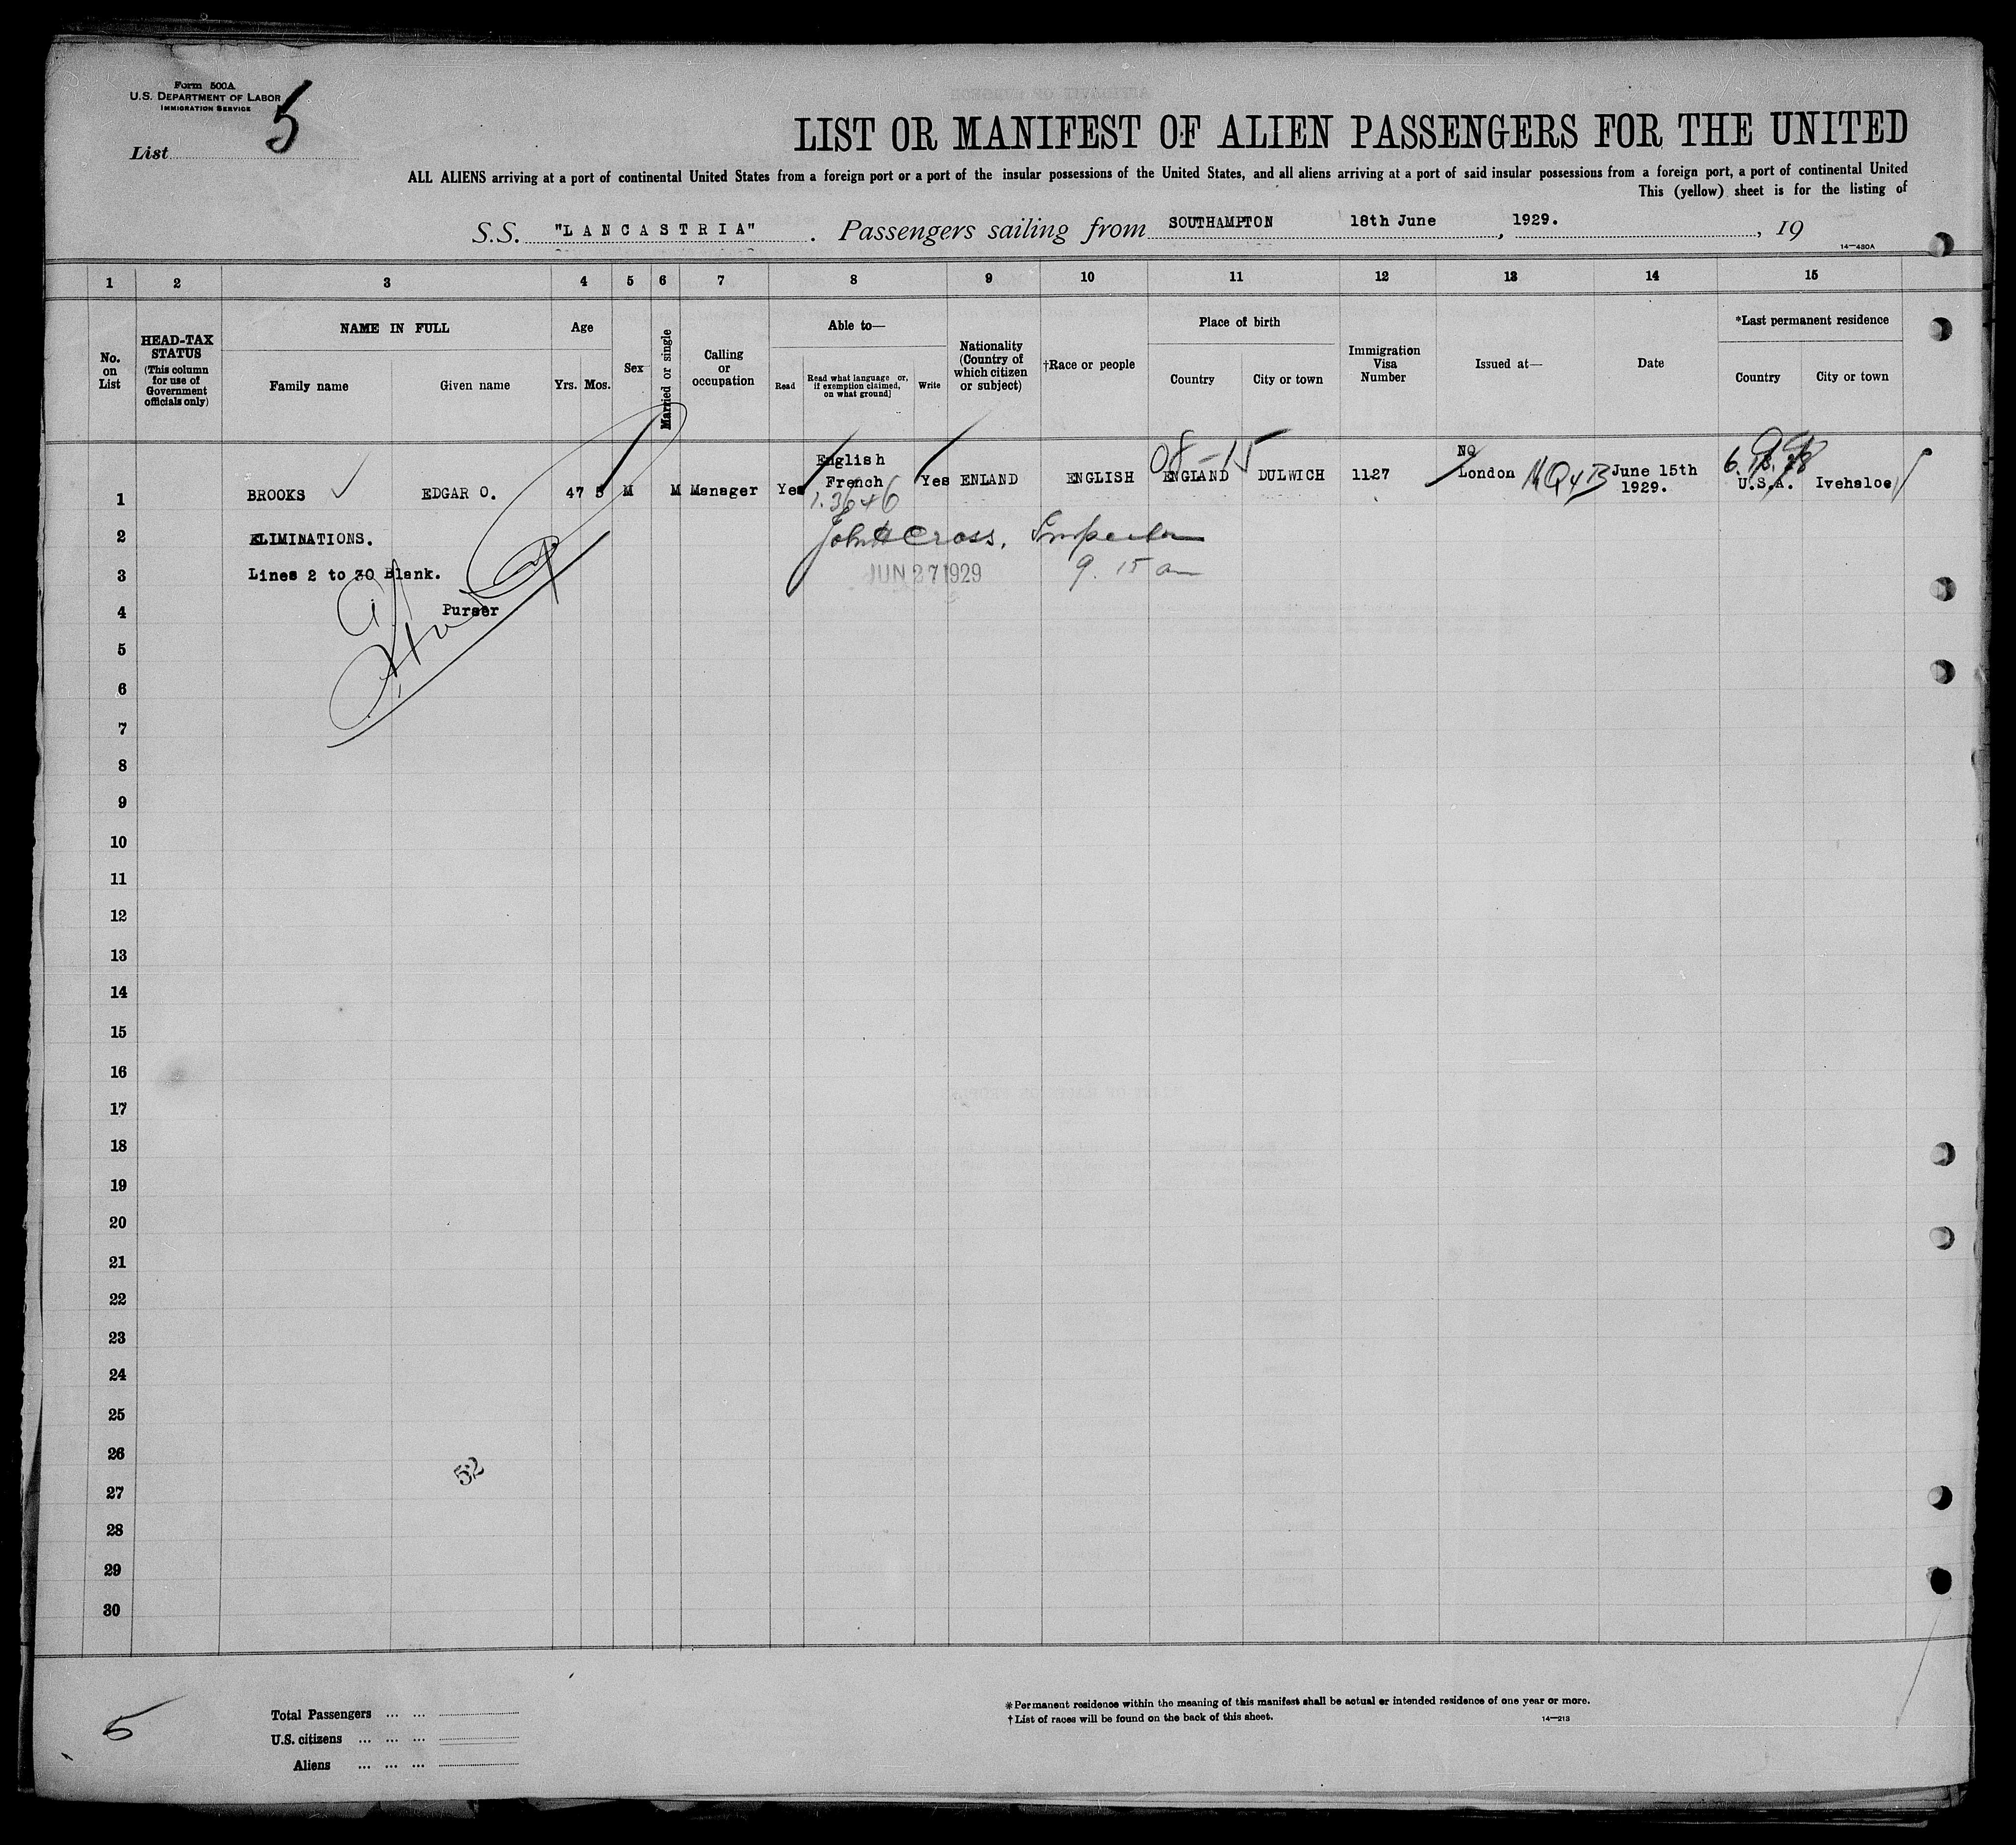 Form 500A
U.S. DEPARTMENT OF LABOR
IMMIGRATION SERVICE
List 5
LIST OR MANIFEST OF ALIEN PASSENGERS FOR THE UNITED
ALL ALIENS arriving at a port of continental United States from a foreign port or a port of the insular possessions of the United States, and all aliens arriving at a port of said insular possessions from a foreign port, a port of continental United
This (yellow) sheet is for the listing of
S.S. "LANCASTRIA". Passengers sailing from SOUTHAMPTON 18th June, 1929., 19
14—480A
1 2 3 4 5 6 7 8 9 10 11 12 13 14 15
No. on List
HEAD-TAX STATUS
(This column for use of Government officials only)
NAME IN FULL
Family name Given name
Age
Yrs. Mos.
Sex
Married or single
Calling or occupation
Able to—
Read
Read what language or, if exemption claimed, on what ground]
Write
Nationality (Country of which citizen or subject)
†Race or people
Place of birth
Country City or town
Immigration Visa Number
Issued at—
Date
*Last permanent residence
Country City or town
08-15
1 BROOKS EDGAR O. 47 5 M M Manager Yes English French Yes ENLAND ENGLISH ENGLAND DULWICH 1127 NQ London NQ4B June 15th 1929. U.S.A. Ivehaloe
1.3646
2 ELIMINATIONS.
John H Cross, Inspector
3 Lines 2 to 30 Blank.
JUN 27 1929 9.15 am
4 Purser
5
6
7
8
9
10
11
12
13
14
15
16
17
18
19
20
21
22
23
24
25
26
52
27
28
29
30
5
Total Passengers ... ...
U.S. citizens ... ... ...
Aliens ... ... ...
*Permanent residence within the meaning of this manifest shall be actual or intended residence of one year or more.
†List of races will be found on the back of this sheet.
14—213